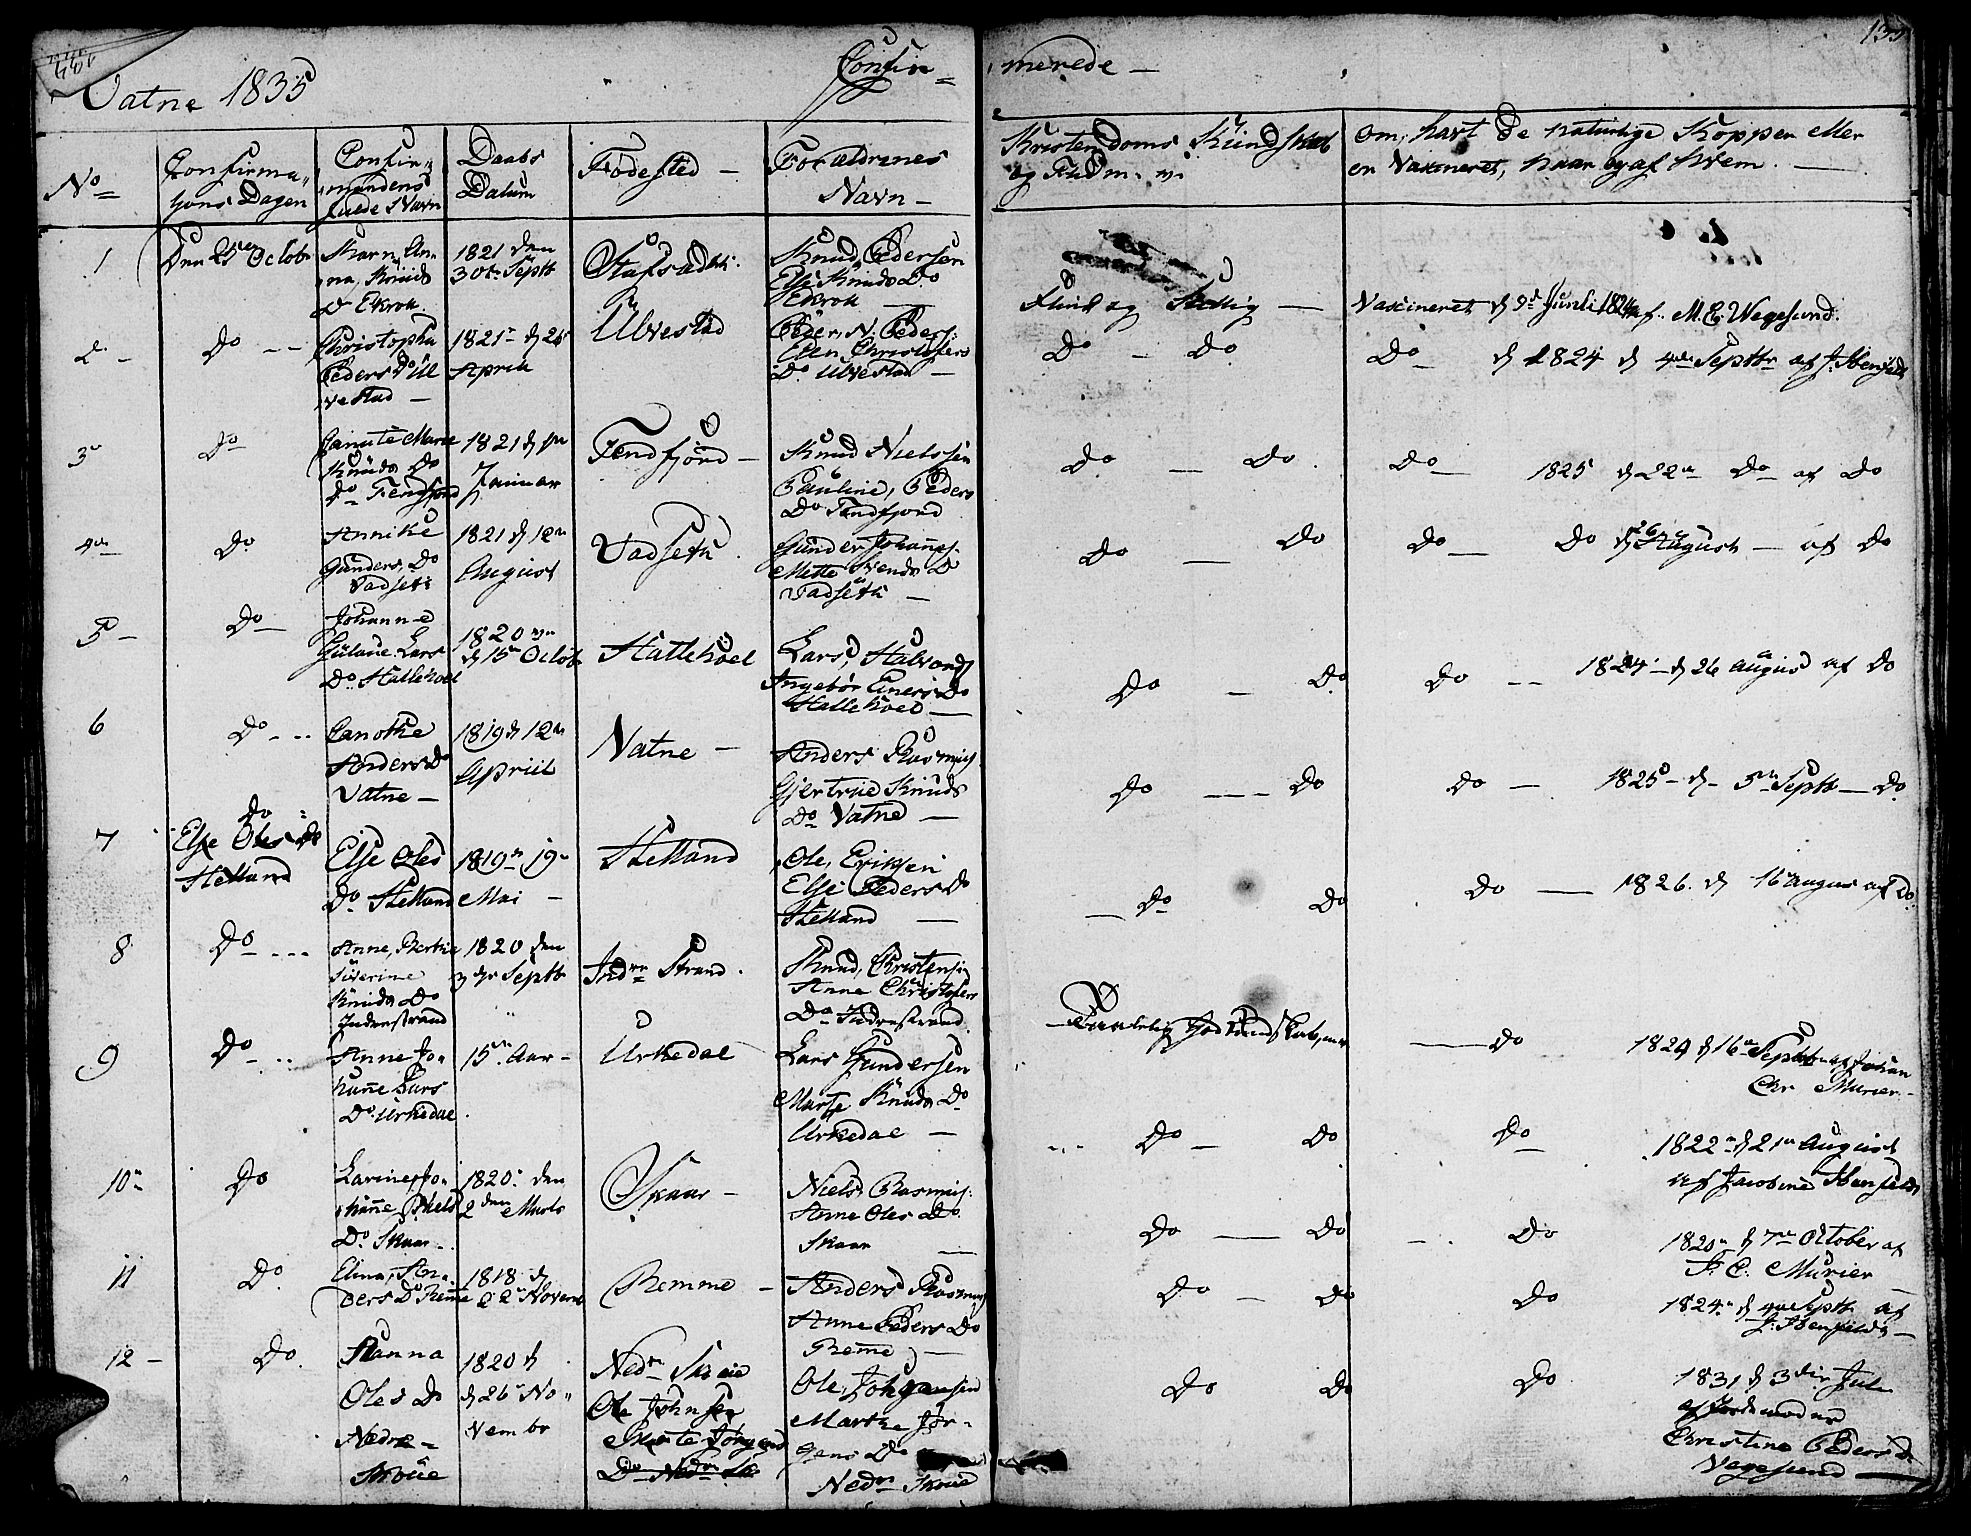 135
Vatne 1835
Confir=
merede —
No
Confirma„
tions Dagen
Confir„
mandens
fulde Navn
Daabs
Datum
Fødested —
Forældrenes
Navn —
Kristendoms Kundskab
og Flid m. v.
om, havt de naturlige Kopper eller
er Vaxineret, naar og af hvem. —
1
Den 25 Octob
na, Knuds
Do Ekrok
1821 den
30te Septb
Knud, Pedersen
Else Knuds Do
Ekrok —
Flink og Skikkelig —
Vaxineret d 9de Junii 1824 af M. E. Wegesund.
2 —
Do — —
Christopha
Peders Do Ul
vestad —
1821 d 26
April
Ulvestad
Peder N. Peders:
Ellen Christofers
Do Ulvestad —
Do — Do
Do — d 1824 d 4de Septb af J. Ibenfeldt
3
Do
Canute Marie
Knuds Do
Do Fendfjord
1821 d
Januar
Fendfjord —
Knud Nielssen
Pauline, Peders
Do Fendfjord
Do — Do
Do — 1825 d 22 Do — af Do
4
Do
Annike
Gunders Do
Vadseth
1821 d 12
August
Vadseth
Gunder Johanes.
Mette Svends D
Vadseth —
Do — Do
Do — Do d 26 August — af Do
5 —
Do —
Johanne
Gulane Lars
Do Hallehoel
1820
d 15 Octob
Hallehoel
Lars, Halvords
Ingebör Einers Do
Hallehoel —
Do — Do
Do — — 1824 — d 26 August af Do
6
Do — ..
Canothe
Anders Do
Vatne —
1819 d 12
April
Natne —
Anders Rasmus.
Gjertrue Knuds
Do Vatne —
Do — — — Do
Do — 1825 — d — 5 Septb — Do
7
Do
Else Oles Do
Helland
Else Oles
Do Helland
1819 19
Mai —
Helland
Ole, Eriksen
Else Peders Do
Helland —
— Do Do
Do — 1826. d 16 August af Do
8
Do — ...
Anne, Berthe
Siverine
Knuds Do
Indrestrand
1820 den
3die Septb
Indre Strand.
Knud, Christensen
Anne Christofers
Do Indrestrand
God Kundskab,
— Do
1824 d 16 Septb af Johan
Chr Murier —
9
Do — ..
Anne Jo„
hane Lars
Do Urkedal
15 Aar —
Urkedal
Lars Gundersen
Marte Knuds Do
Urkedal —
Do — Do
Do
1822 d 21 August
af Jacobine Ibenfeldt
10
Do
Larine, Jo„
hane Niels
Do Skaar —
1820 den
2den Marts
Skaar —
Niels Rasmus:
Anne Oles Do
Skaar —
Do — Do
Do
1820 d 7 October af
J. C. Murier —
11
Do
Elina, An„
ders Do Reme
1818 d
22 Novemb
Remme —
Anders Rasmus
Anne Peders Do
Reme —
Do — Do
Do
1824 d 4de Septb af
J. Ibenfeldt —
12 —
Do.
Hanna
Oles Do
Nedre —
Skoue
1820 d
d 26 No„
vembr
Nedre Skoue
Ole Johnsen
Marte Jørgens
Do Nedre Sk
Ole, Johansen
Marthe Jør„
gens Do
Nedre Skoue
Do Do
Do
1831 d 3die Jul
af Jordemoder
Christine Peders D
Vagesund —